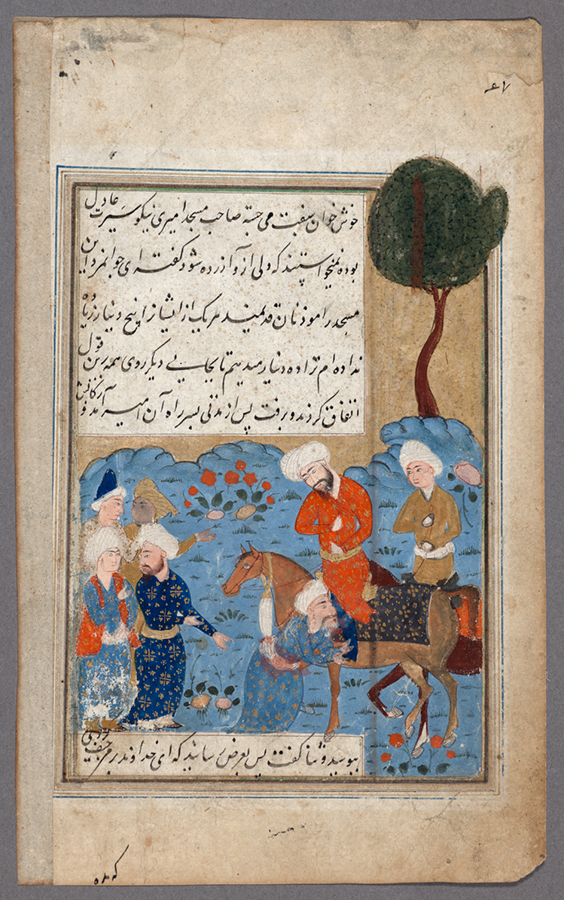 خوش خوان می جسته صاحب مسجد امیری نیکو سیرت عادل
بوده نمیخواستند که دلی ازو آزرده شود گفته ای جوانمرد این
مسجد را موذنان قدیمند هر یک از ایشان را پنج دینار زیاده
نداده ام ترا ده دینار میدهم تا بجایی دیگر روی همه برین قول
اتفاق کردند و برفت پس از مدتی بسر راه آن امیر آمد و رکابش
ببوسید و ثنا گفت پس بعرض رسانید که ای خداوند بر من حیف کردی